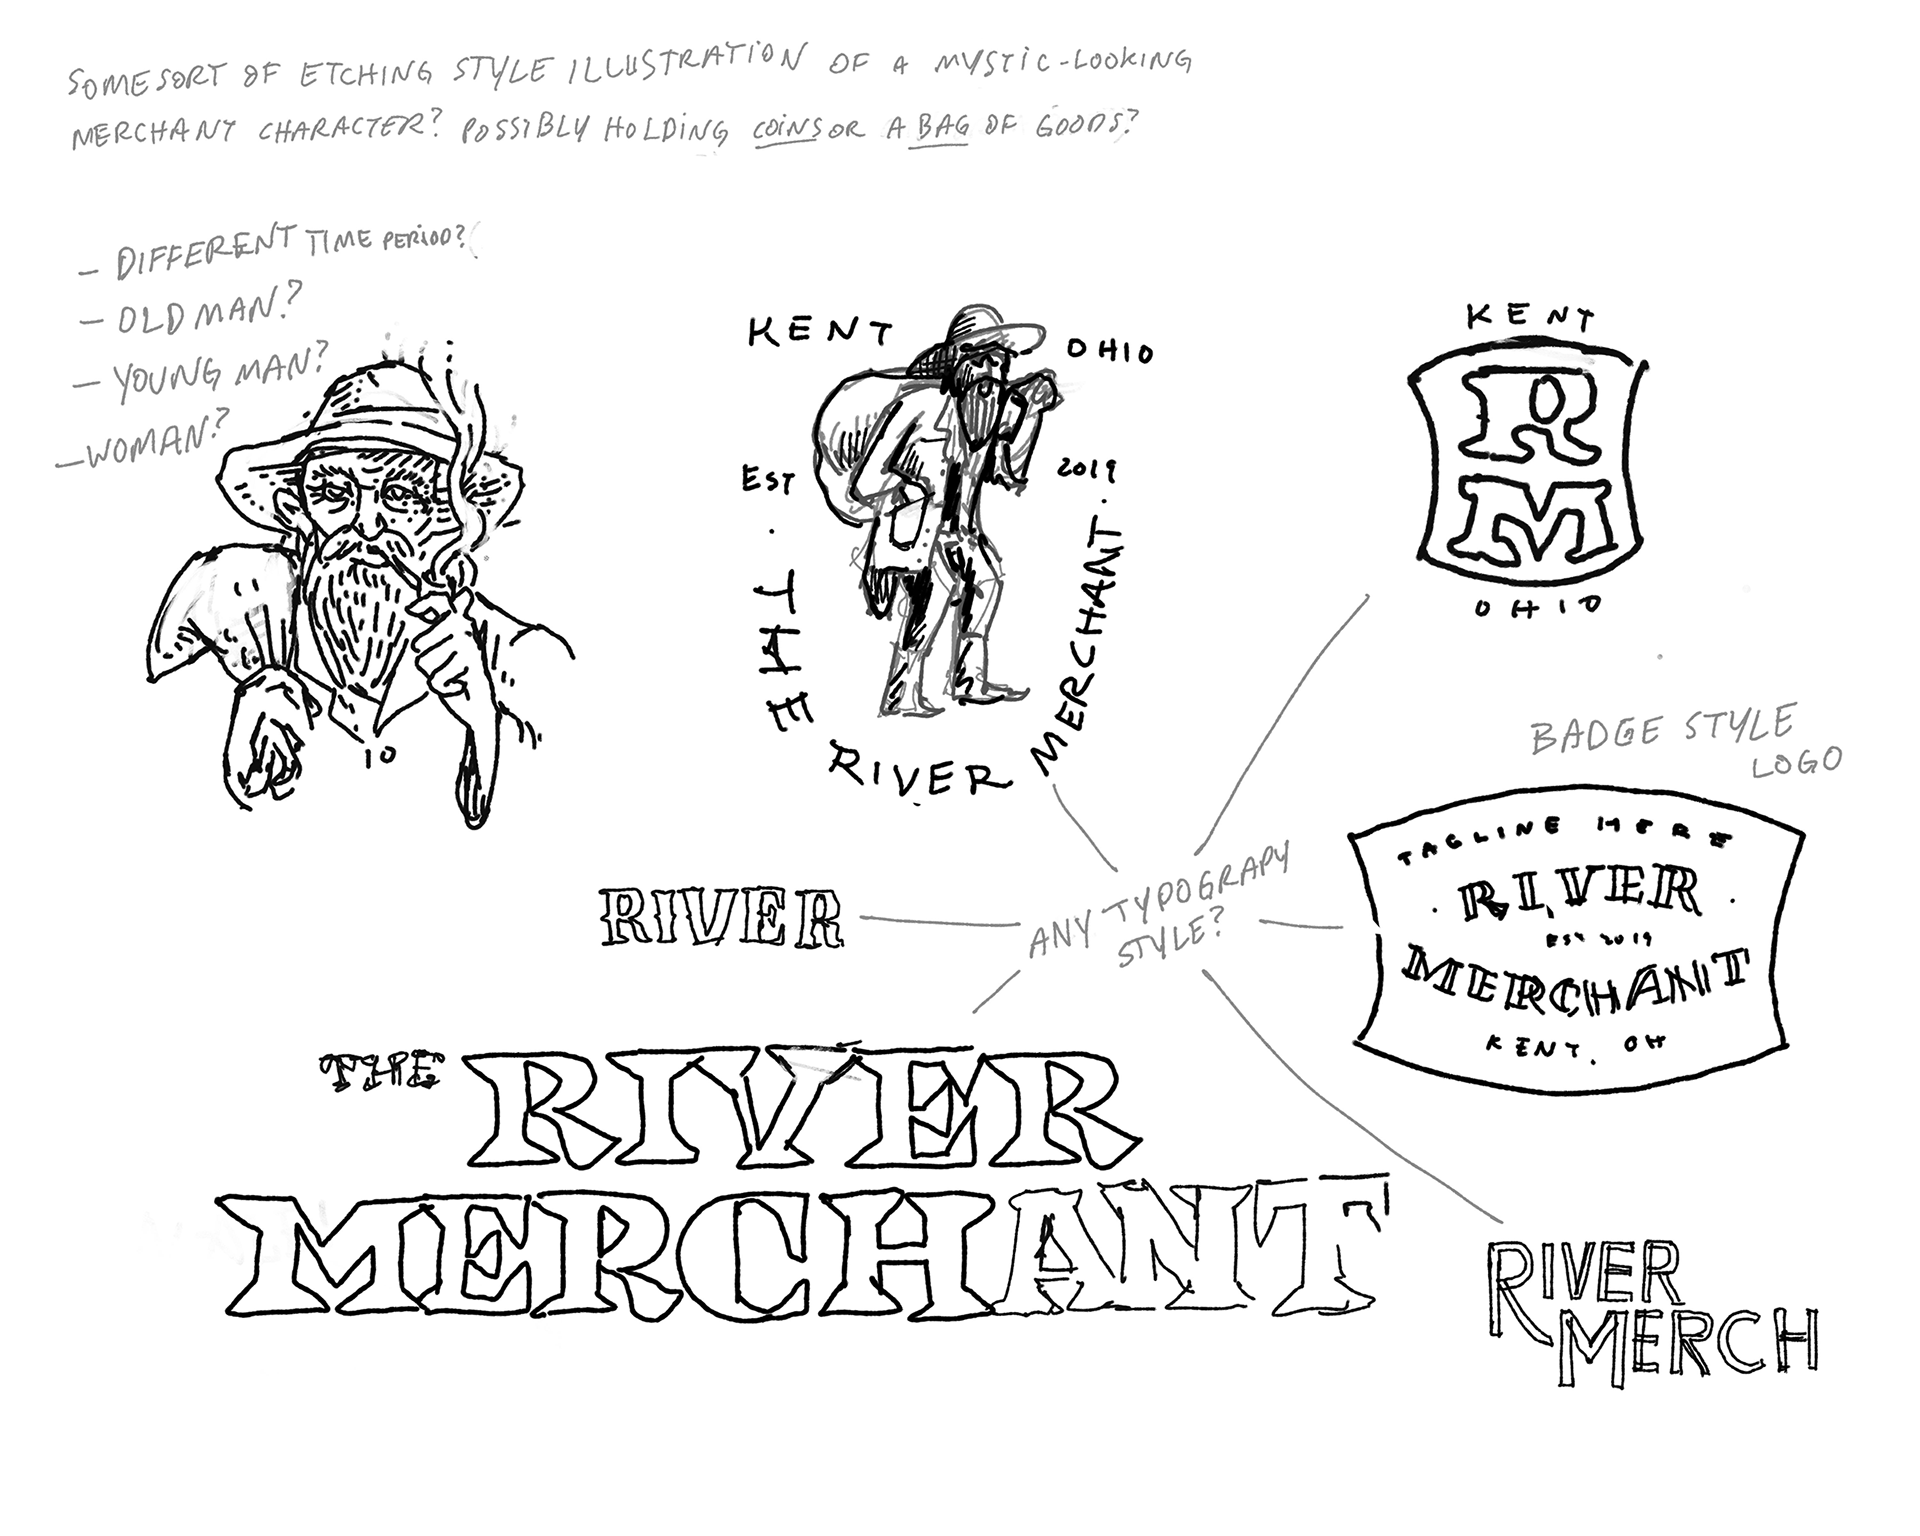 SOME SORT OF ETCHING STYLE ILLUSTRATION OF A MYSTIC-LOOKING
MERCHANT CHARACTER? POSSIBLY HOLDING COINS OR A BAG OF GOODS?
- DIFFERENT TIME PERIOD?
- OLD MAN?
- YOUNG MAN?
- WOMAN?
10
KENT OHIO
EST 2019
· THE RIVER MERCHANT ·
KENT
RM
OHIO
BADGE STYLE
LOGO
TAGLINE HERE
· RIVER ·
EST 2019
MERCHANT
KENT, OH
RIVER
ANY TYPOGRAPY
STYLE?
THE RIVER
MERCHANT
RIVER
MERCH